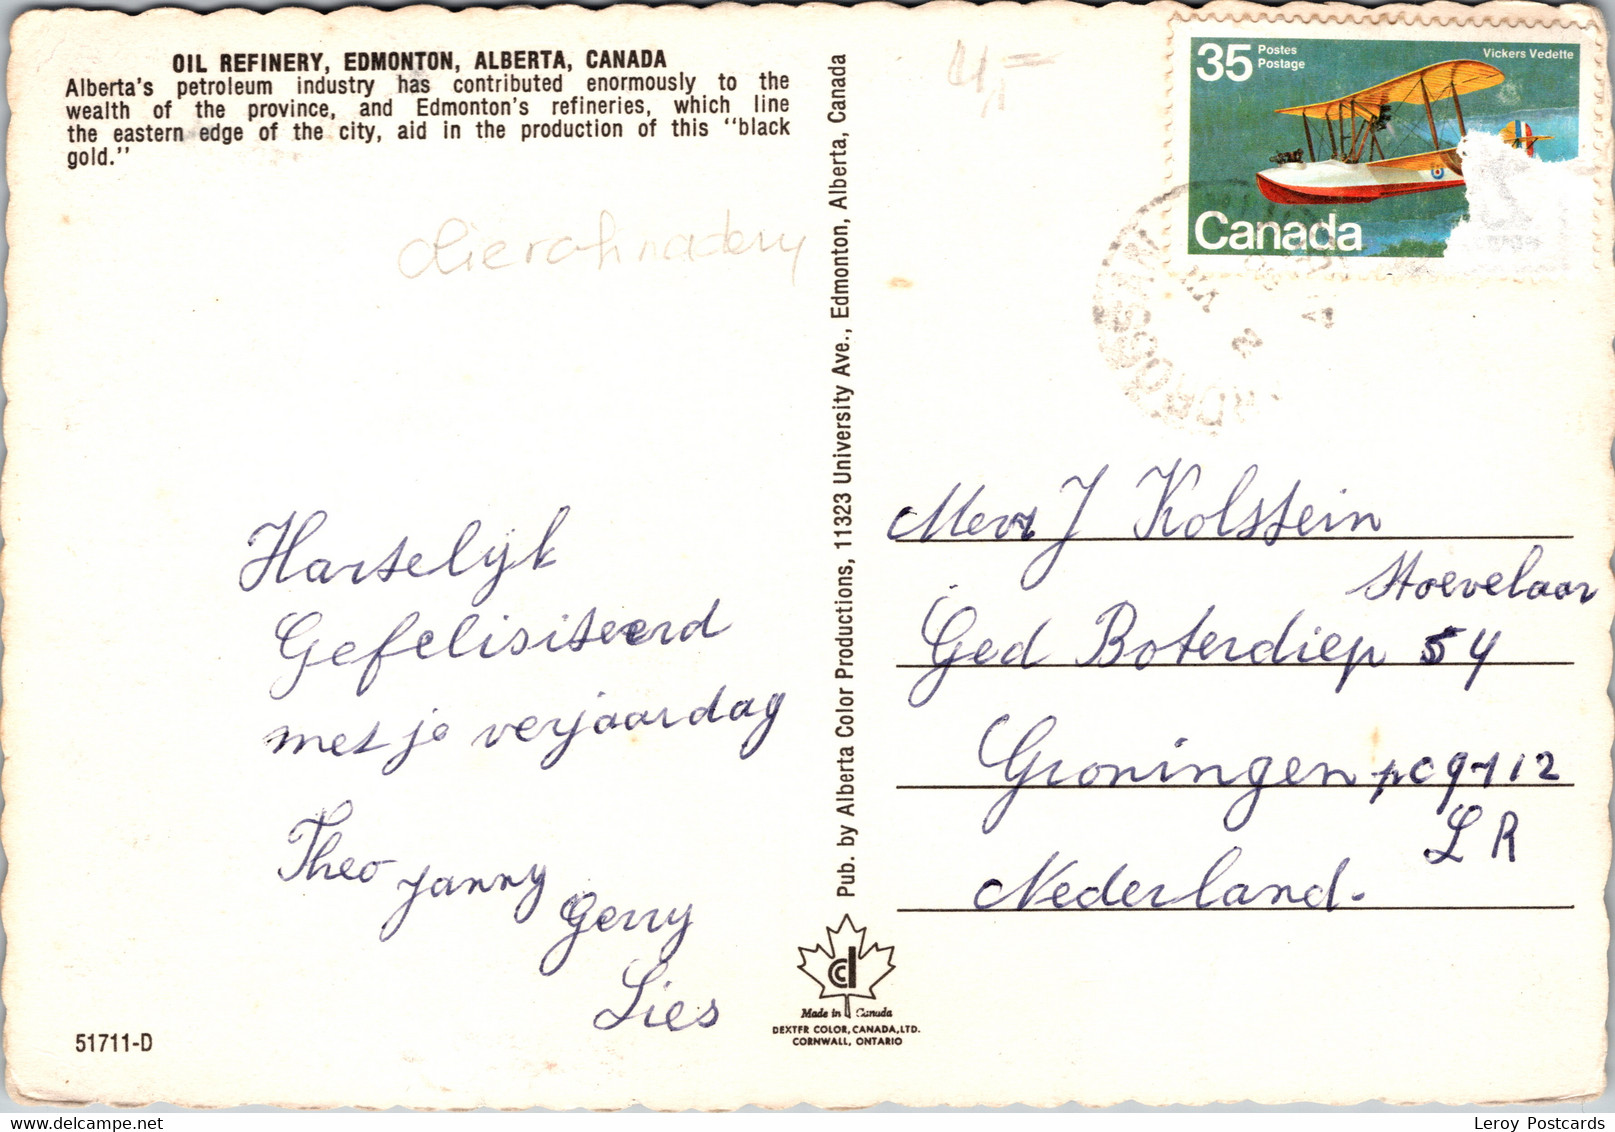 OIL REFINERY, EDMONTON, ALBERTA, CANADA
Alberta's petroleum industry has contributed enormously to the
wealth of the province, and Edmonton's refineries, which line
the eastern edge of the city, aid in the production of this "black
gold."
Hartelijk
Gefelisiteerd
met je verjaardag
Theo Janny
Gerry
Lies
51711-D
Pub. by Alberta Color Productions, 11323 University Ave., Edmonton, Alberta, Canada
Made in Canada
DEXTER COLOR, CANADA, LTD.
CORNWALL, ONTARIO
35 Postes
Postage
Vickers Vedette
Canada
Mevr J Kolstein
Hoevelaar
Ged Boterdiep 54
Groningen pc 9712
LR
Nederland.
Leroy Postcards